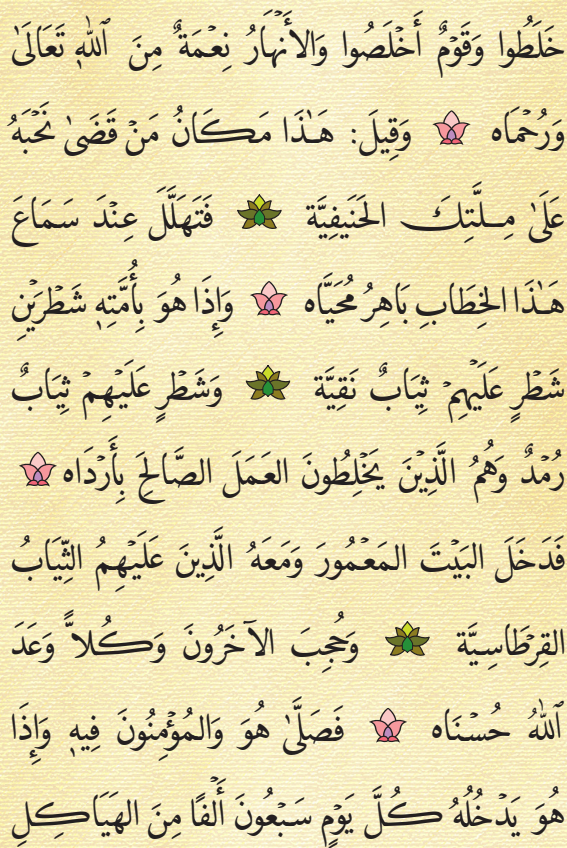 خَلَطُوا وَقَوْمٌ أَخْلَصُوا وَالأَنْهَارُ نِعْمَةٌ مِنَ ٱللهِ تَعَالَىٰ
وَرُحْمَاه وَقِيلَ: هَـٰذَا مَكَانُ مَنْ قَضَىٰ نَحْبَهُ
عَلَىٰ مِلَّتِكَ الحَنَيفِيَّة فَتَهَلَّلَ عِنْدَ سَمَاعَ
هَـٰذَا الخِطَابِ بَاهِرُ مُحَيَّاه وَإِذَا هُوَ بِأُمَّتِهِ شَطْرَيْنِ
شَطْرٍ عَلَيْهِمْ ثِيَابٌ نَقِيَّة وَشَطْرٍ عَلَيْهِمْ ثِيَابٌ
رُمْدٌ وَهُمُ الَّذِيْنَ يَخْلِطُونَ العَمَلَ الصَّالِحَ بِأَرْدَاه
فَدَخَلَ البَيْتَ المَعْمُورَ وَمَعَهُ الَّذِينَ عَلَيْهِمُ الثِّيَابُ
القِرْطَاسِيَّة وَحُجِبَ الآخَرُونَ وَكُلاًّ وَعَدَ
ٱللهُ حُسْنَاه فَصَلَّىٰ هُوَ وَالمُؤْمِنُونَ فِيهِ وَإِذَا
هُوَ يَدْخُلُهُ كُلَّ يَوْمٍ سَبْعُونَ أَلْفًا مِنَ الهَيَاكِلِ